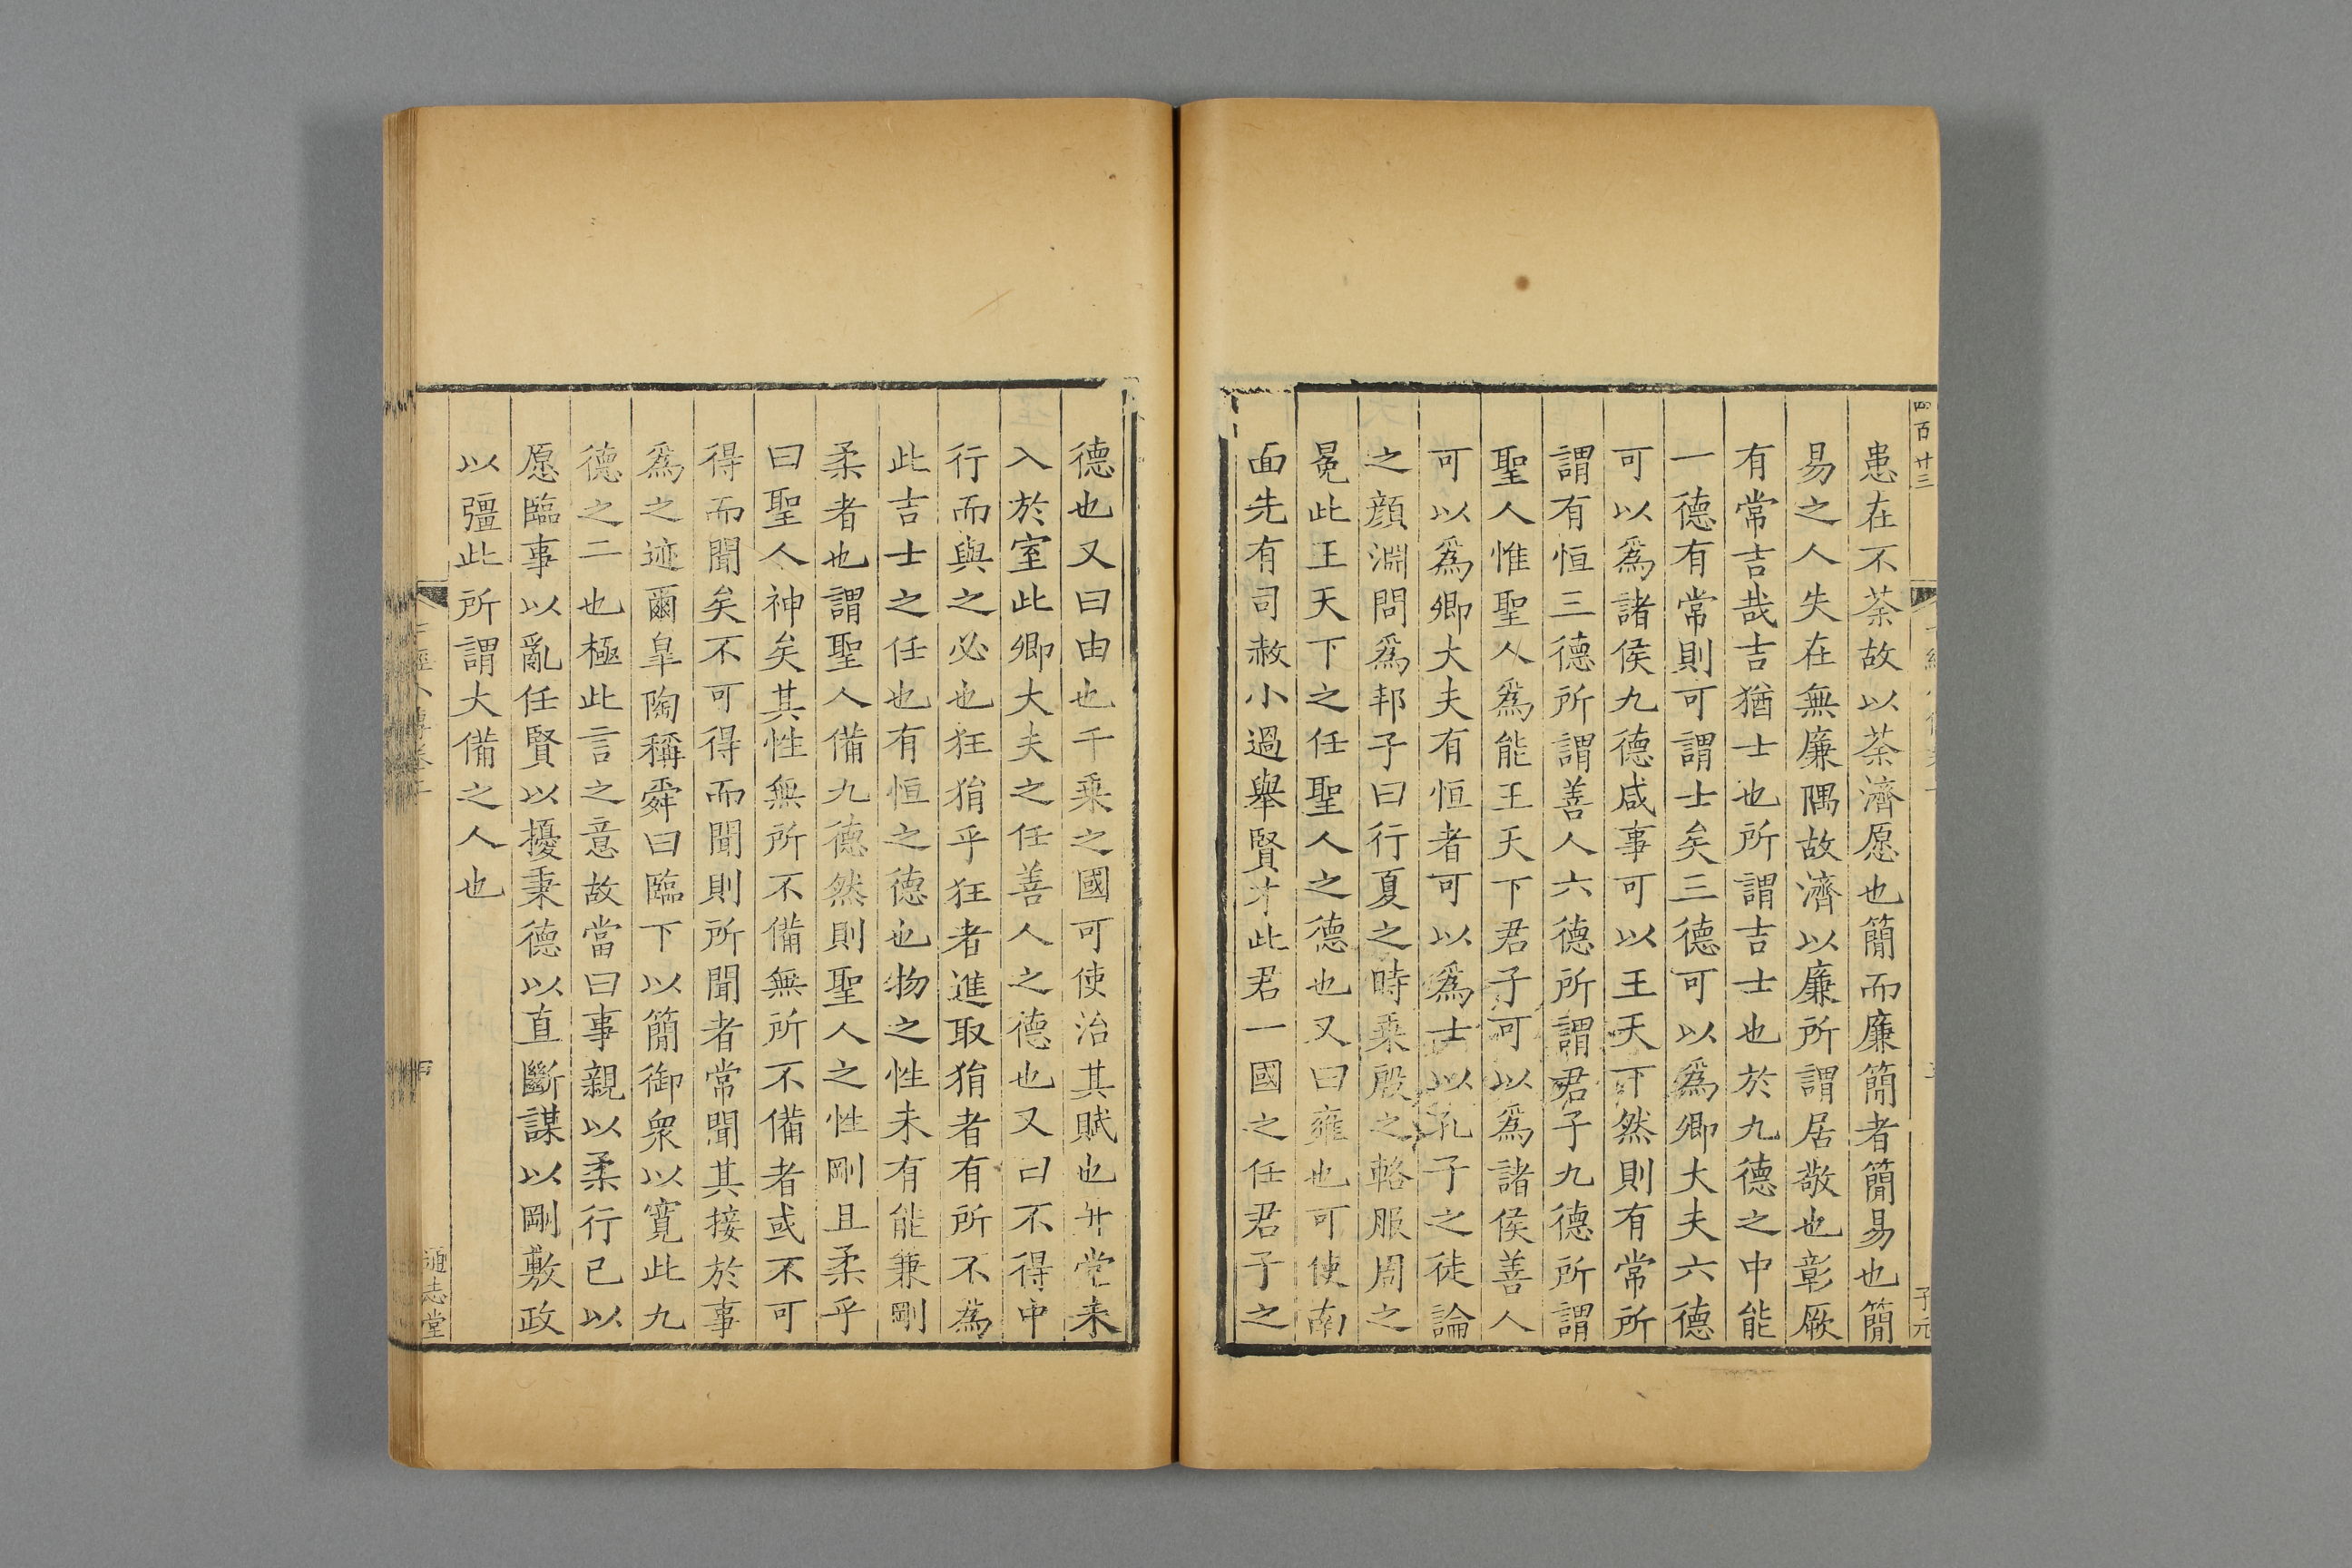 四百廿三
子元
患在不荼故以荼濟愿也簡而廉簡者簡易也簡
易之人失在無廉隅故濟以廉所謂居敬也彰厥
有常吉哉吉猶士也所謂吉士也於九德之中能
一德有常則可謂士矣三德可以爲卿大夫六德
可以爲諸侯九德咸事可以王天下然則有常所
謂有恒三德所謂善人六德所謂君子九德所謂
聖人惟聖人爲能王天下君子可以爲諸侯善人
可以爲卿大夫有恒者可以爲士以孔子之徒論
之顔淵問爲邦子曰行夏之時乘殷之輅服周之
冕此王天下之任聖人之德也又曰雍也可使南
面先有司赦小過舉賢才此君一國之任君子之
德也又曰由也千乘之國可使治其賦也升堂未
入於室此卿大夫之任善人之德也又曰不得中
行而與之必也狂狷乎狂者進取狷者有所不爲
此吉士之任也有恒之德也物之性未有能兼剛
柔者也謂聖人備九德然則聖人之性剛且柔乎
曰聖人神矣其性無所不備無所不備者或不可
得而聞矣不可得而聞則所聞者常聞其接於事
爲之迹爾皐陶稱舜曰臨下以簡御衆以寬此九
德之二也極此言之意故當曰事親以柔行己以
愿臨事以亂任賢以擾秉德以直斷謀以剛敷政
以彊此所謂大備之人也
通志堂